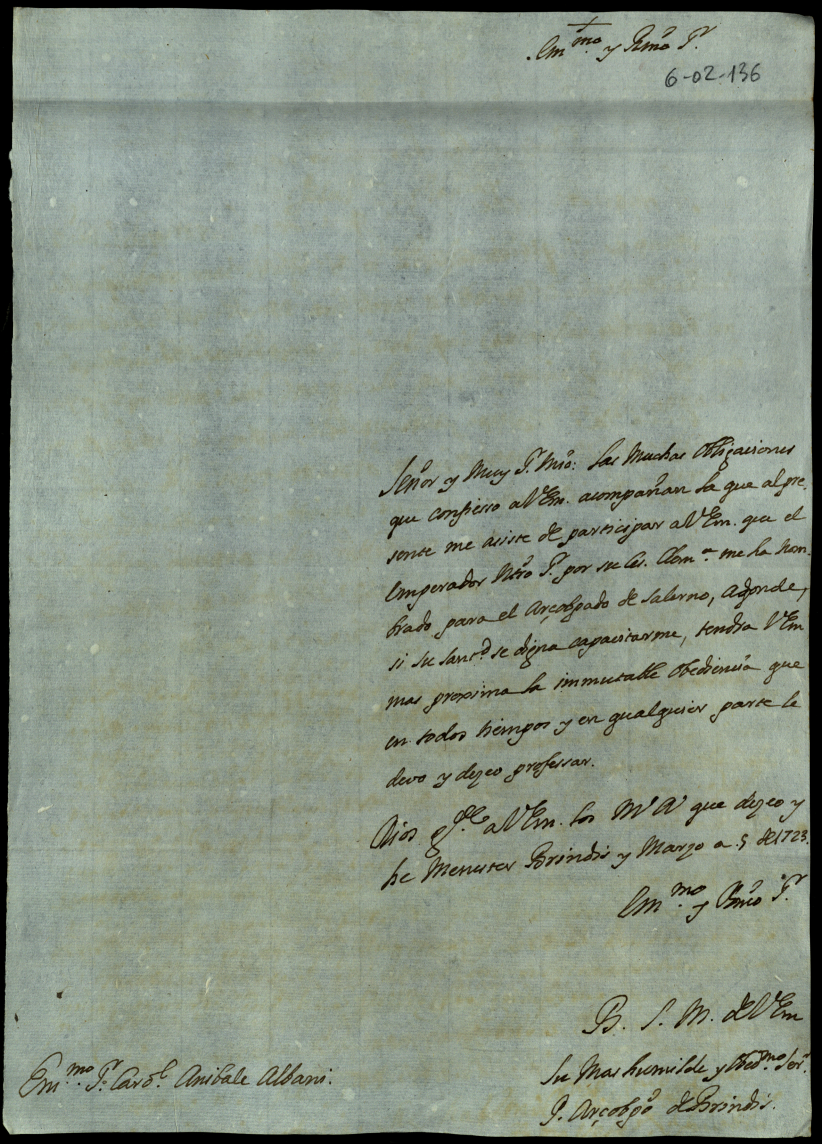 Em.mo y Rmo Sr
6-02-136
Señor y Muy Sr. Mio: Las Muchas obligaciones
que confiesso a V Em. acompañan la que al pre-
sente me asiste de participar a V Em. que el
Emperador Ntro Sr. por su Ces. Clem.a me ha nom-
brado para el Arçobpado de Salerno, adonde,
si su Sant.d se digna capacitarme, tendra V Em
mas proxima la immutable obediencia que
en todos tiempos y en qualquier parte le
devo y dezeo professar.
Dios g.de a V Em. los Ms As que dezeo y
he Menester Brindis y Marzo a 5 de 1723.
Em.mo y Rmo Sr
B. S. M. de V Em
Su Mas humilde y Obed.mo Ser.r
P. Arçobpo de Brindis.
Em.mo Sr. Card.l Anibale Albani.